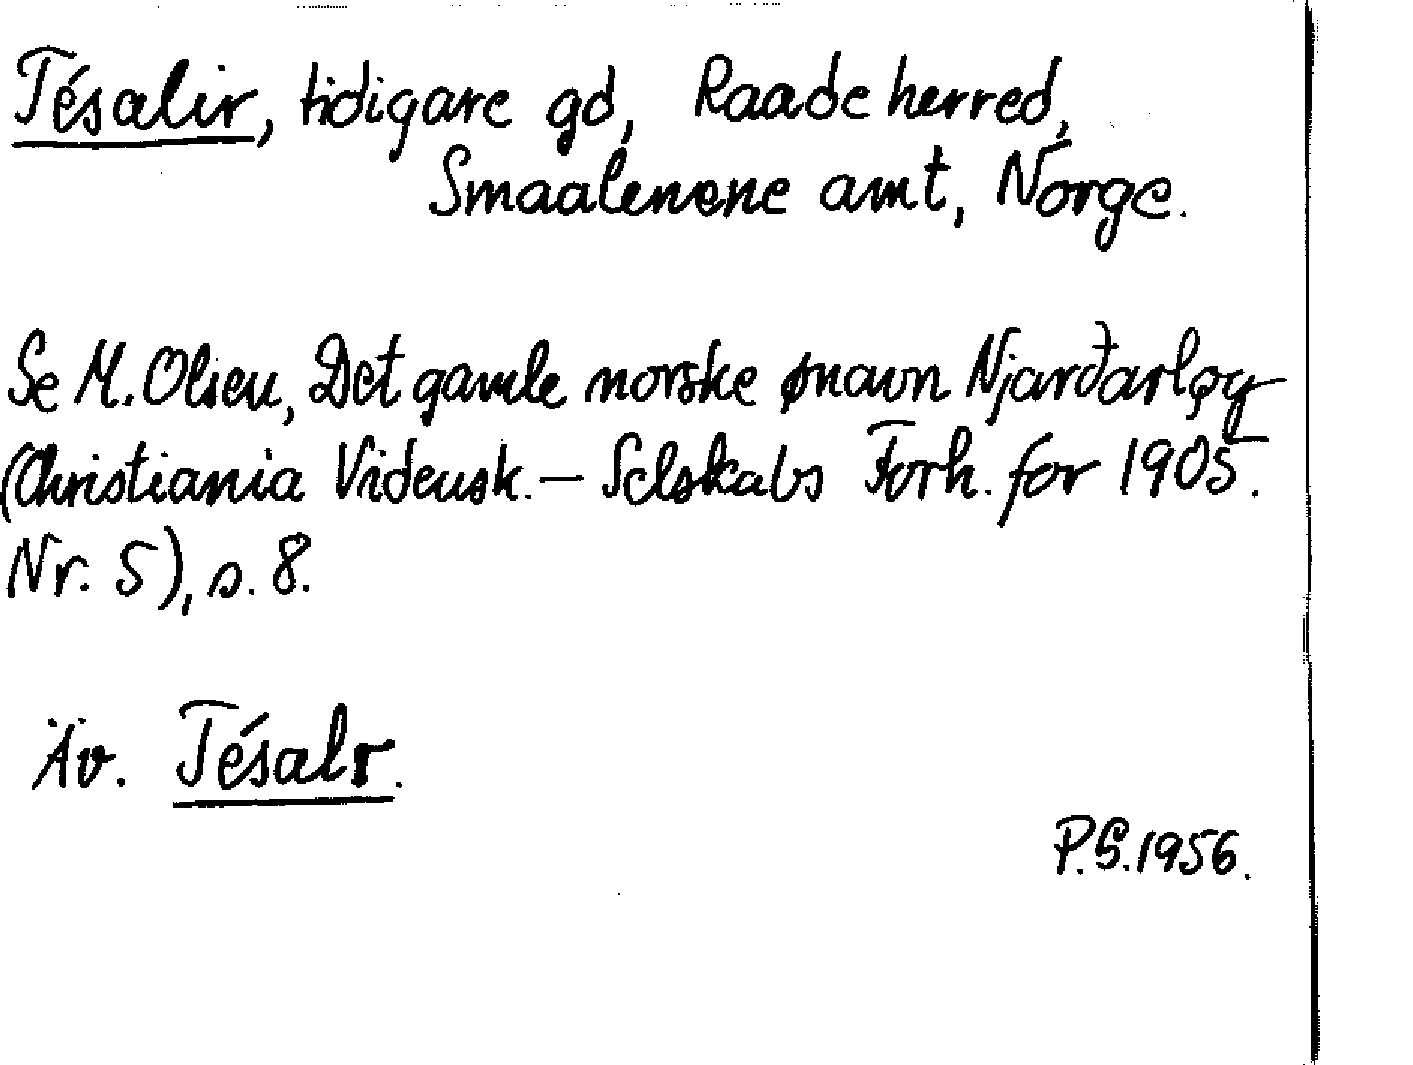 Tésalir, tidigare gd, Raade herred,
Smaalenene amt, Norge.
Se M. Olsen, Det gamle norske ønavn Njarðarlǫg
(Christiania Vidensk. – Selskabs Forh. for 1905.
Nr. 5), s. 8.
Äv. Tésalr.
P.S. 1956.